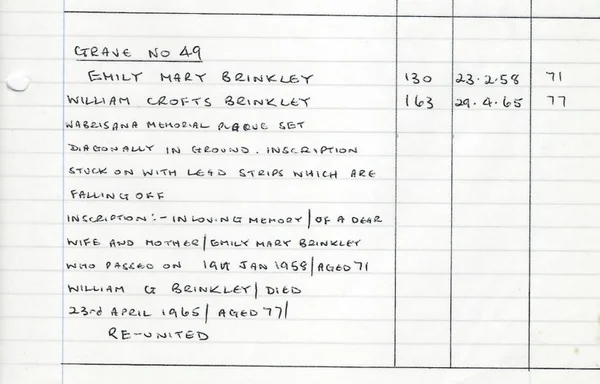 GRAVE NO 49
EMILY MARY BRINKLEY 130 23.2.58 71
WILLIAM CROFTS BRINKLEY 163 29.4.65 77
MEMORIAL PLAQUE SET
DIAGONALLY IN GROUND. INSCRIPTION
STUCK ON WITH LEAD STRIPS WHICH ARE
FALLING OFF
INSCRIPTION:- IN LOVING MEMORY/OF A DEAR
WIFE AND MOTHER/EMILY MARY BRINKLEY
WHO PASSED ON JAN 1958/AGED 71
WILLIAM BRINKLEY/DIED
23rd APRIL 1965/AGED 77/
RE-UNITED